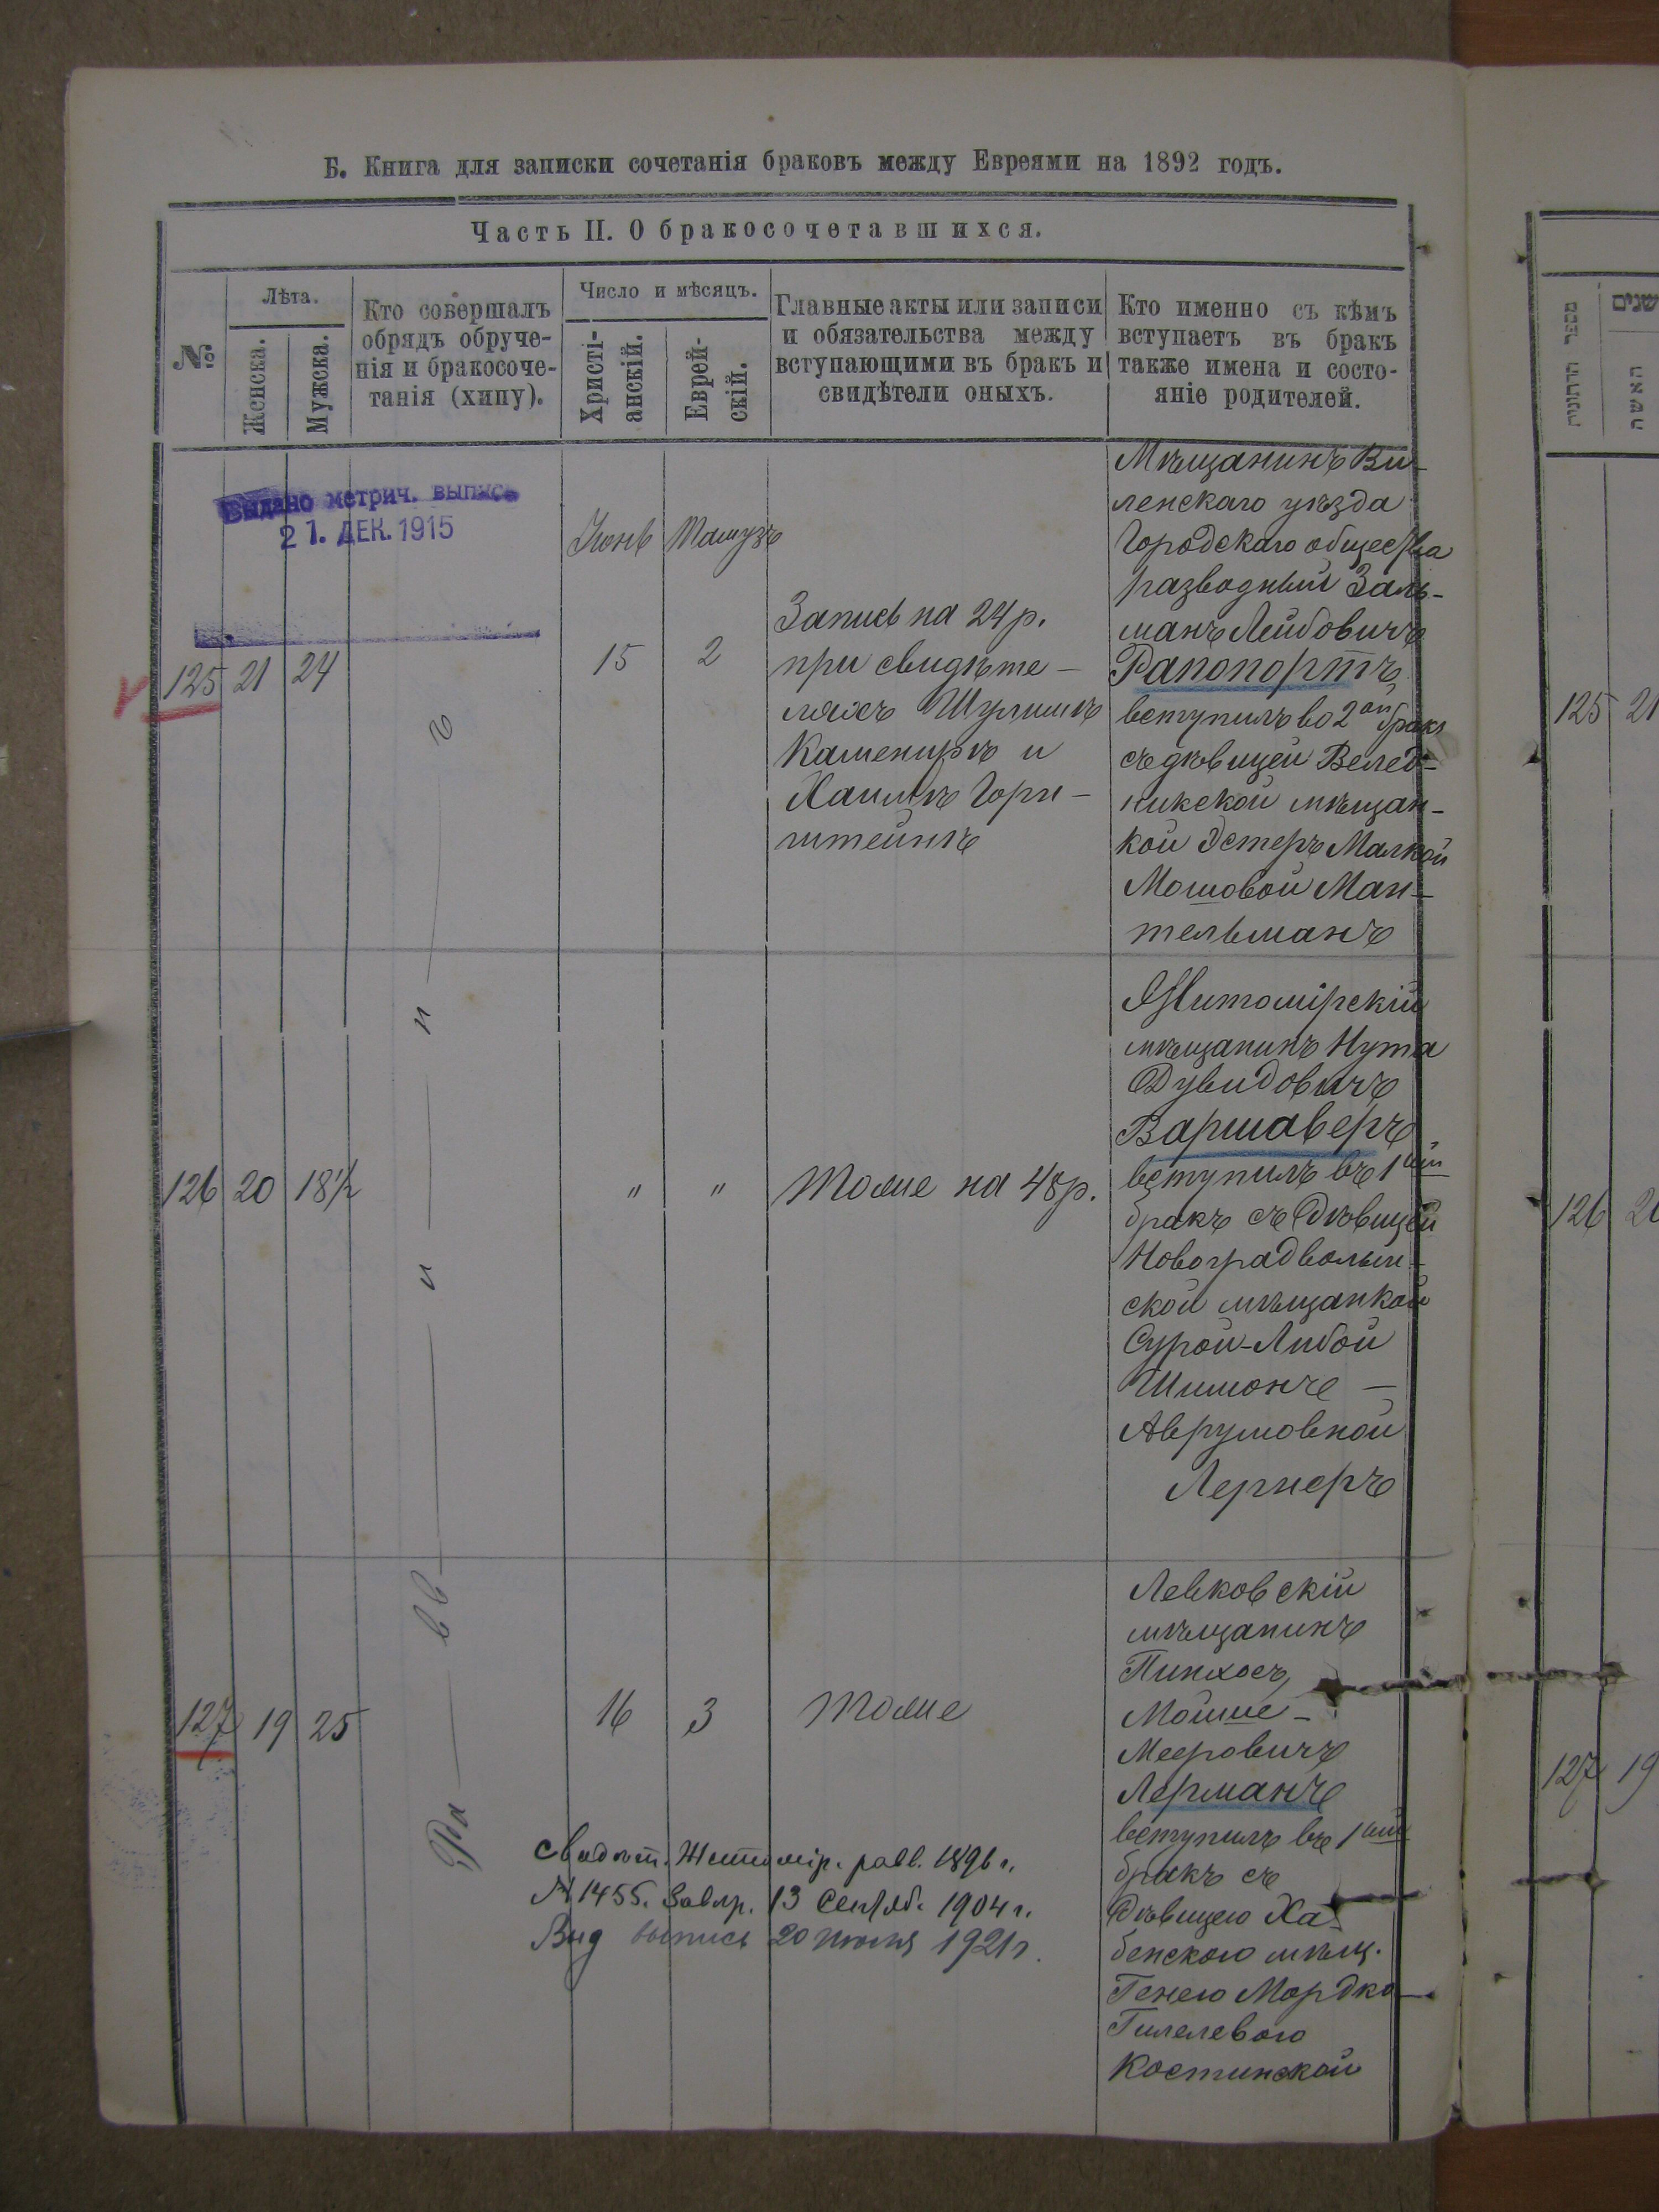 Б. Книга для записки сочетанія браковъ между Евреями на 1892 годъ.
Часть II. О бракосочетавшихся.
№
Лѣта.
Женска.
Мужска.
Кто совершалъ
обрядъ обруче-
нія и бракосоче-
танія (хипу).
Число и мѣсяцъ.
Христі-
анскій.
Еврей-
скій.
Главные акты или записи
и обязательства между
вступающими въ бракъ и
свидѣтели оныхъ.
Кто именно съ кѣмъ
вступаетъ въ бракъ
также имена и состо-
яніе родителей.
Выдано метрич. выпись
21. ДЕК. 1915
Іюнь Тамузъ
125 21 24
15 2
Запись на 24 р.
при свидѣте-
ляхъ Шулимъ
Камениръ и
Хаимъ Горн-
штейнъ
Мѣщанинъ Ви-
ленскаго уѣзда
Городскаго общества
разводный Заль-
манъ Лейбовичъ
Рапопортъ
вступилъ во 2ой бракъ
съ дѣвицей Велед-
никской мѣщан-
кой Эстеръ Малкой
Мошовой Ман-
тельманъ
126 20 18½
" "
Тоже на 48 р.
Житомірскій
мѣщанинъ Нута
Дувидовичъ
Варшаверъ
вступилъ въ 1ый
бракъ съ дѣвицей
Новоградволын-
ской мѣщанкой
Сурой-Либой
Шимонъ-
Аврумовной
Лернеръ
127 19 25
16 3
Тоже
Левковскій
мѣщанинъ
Пинхосъ
Мойше-
Мееровичъ
Лерманъ
вступилъ въ 1ый
бракъ съ
дѣвицею Ха-
бенскою мѣщ.
Генею Мордко-
Гилелевою
Костинской
Свидѣт. Житомір. равв. 1896 г.
№ 1455. 13 Сентяб. 1904 г.
Выд выпись 20 июля 1921 г.
מספר הדתונית
שנים
האשה
125 21
126 20
127 19